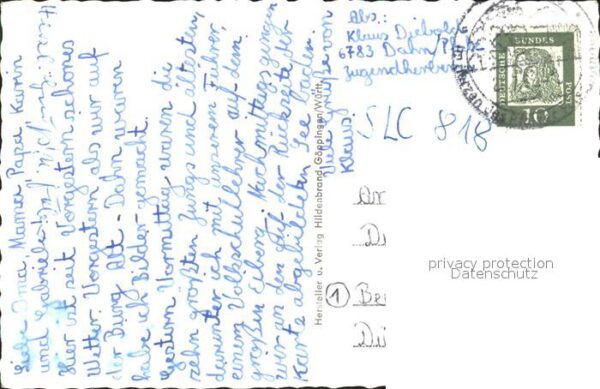 Liebe Oma, Mama, Papa, Karin
und Gabriele!
Hier ist seit Vorgestern schönes
Wetter. Vorgestern als wir auf
der Burg Alt-Dahn waren
habe ich Bilder gemacht.
Gestern Vormittag waren die
zehn größten Jungs und ältesten,
darunter ich mit unserem Führer
einem Volksschullehrer auf dem
großen Eiberg. Nachmittags gingen
wir an den auf der Rückseite der
Karte abgebildeten See baden.
Viele Grüße von
Klaus.
Hersteller u. Verlag Hildenbrand, Göppingen/Württ.
Abs.:
Klaus Diebold
6783 Dahn/Pfalz
Jugendherberge
SLC 818
DEUTSCHE
BUNDES
POST
10
1
privacy protection
Datenschutz